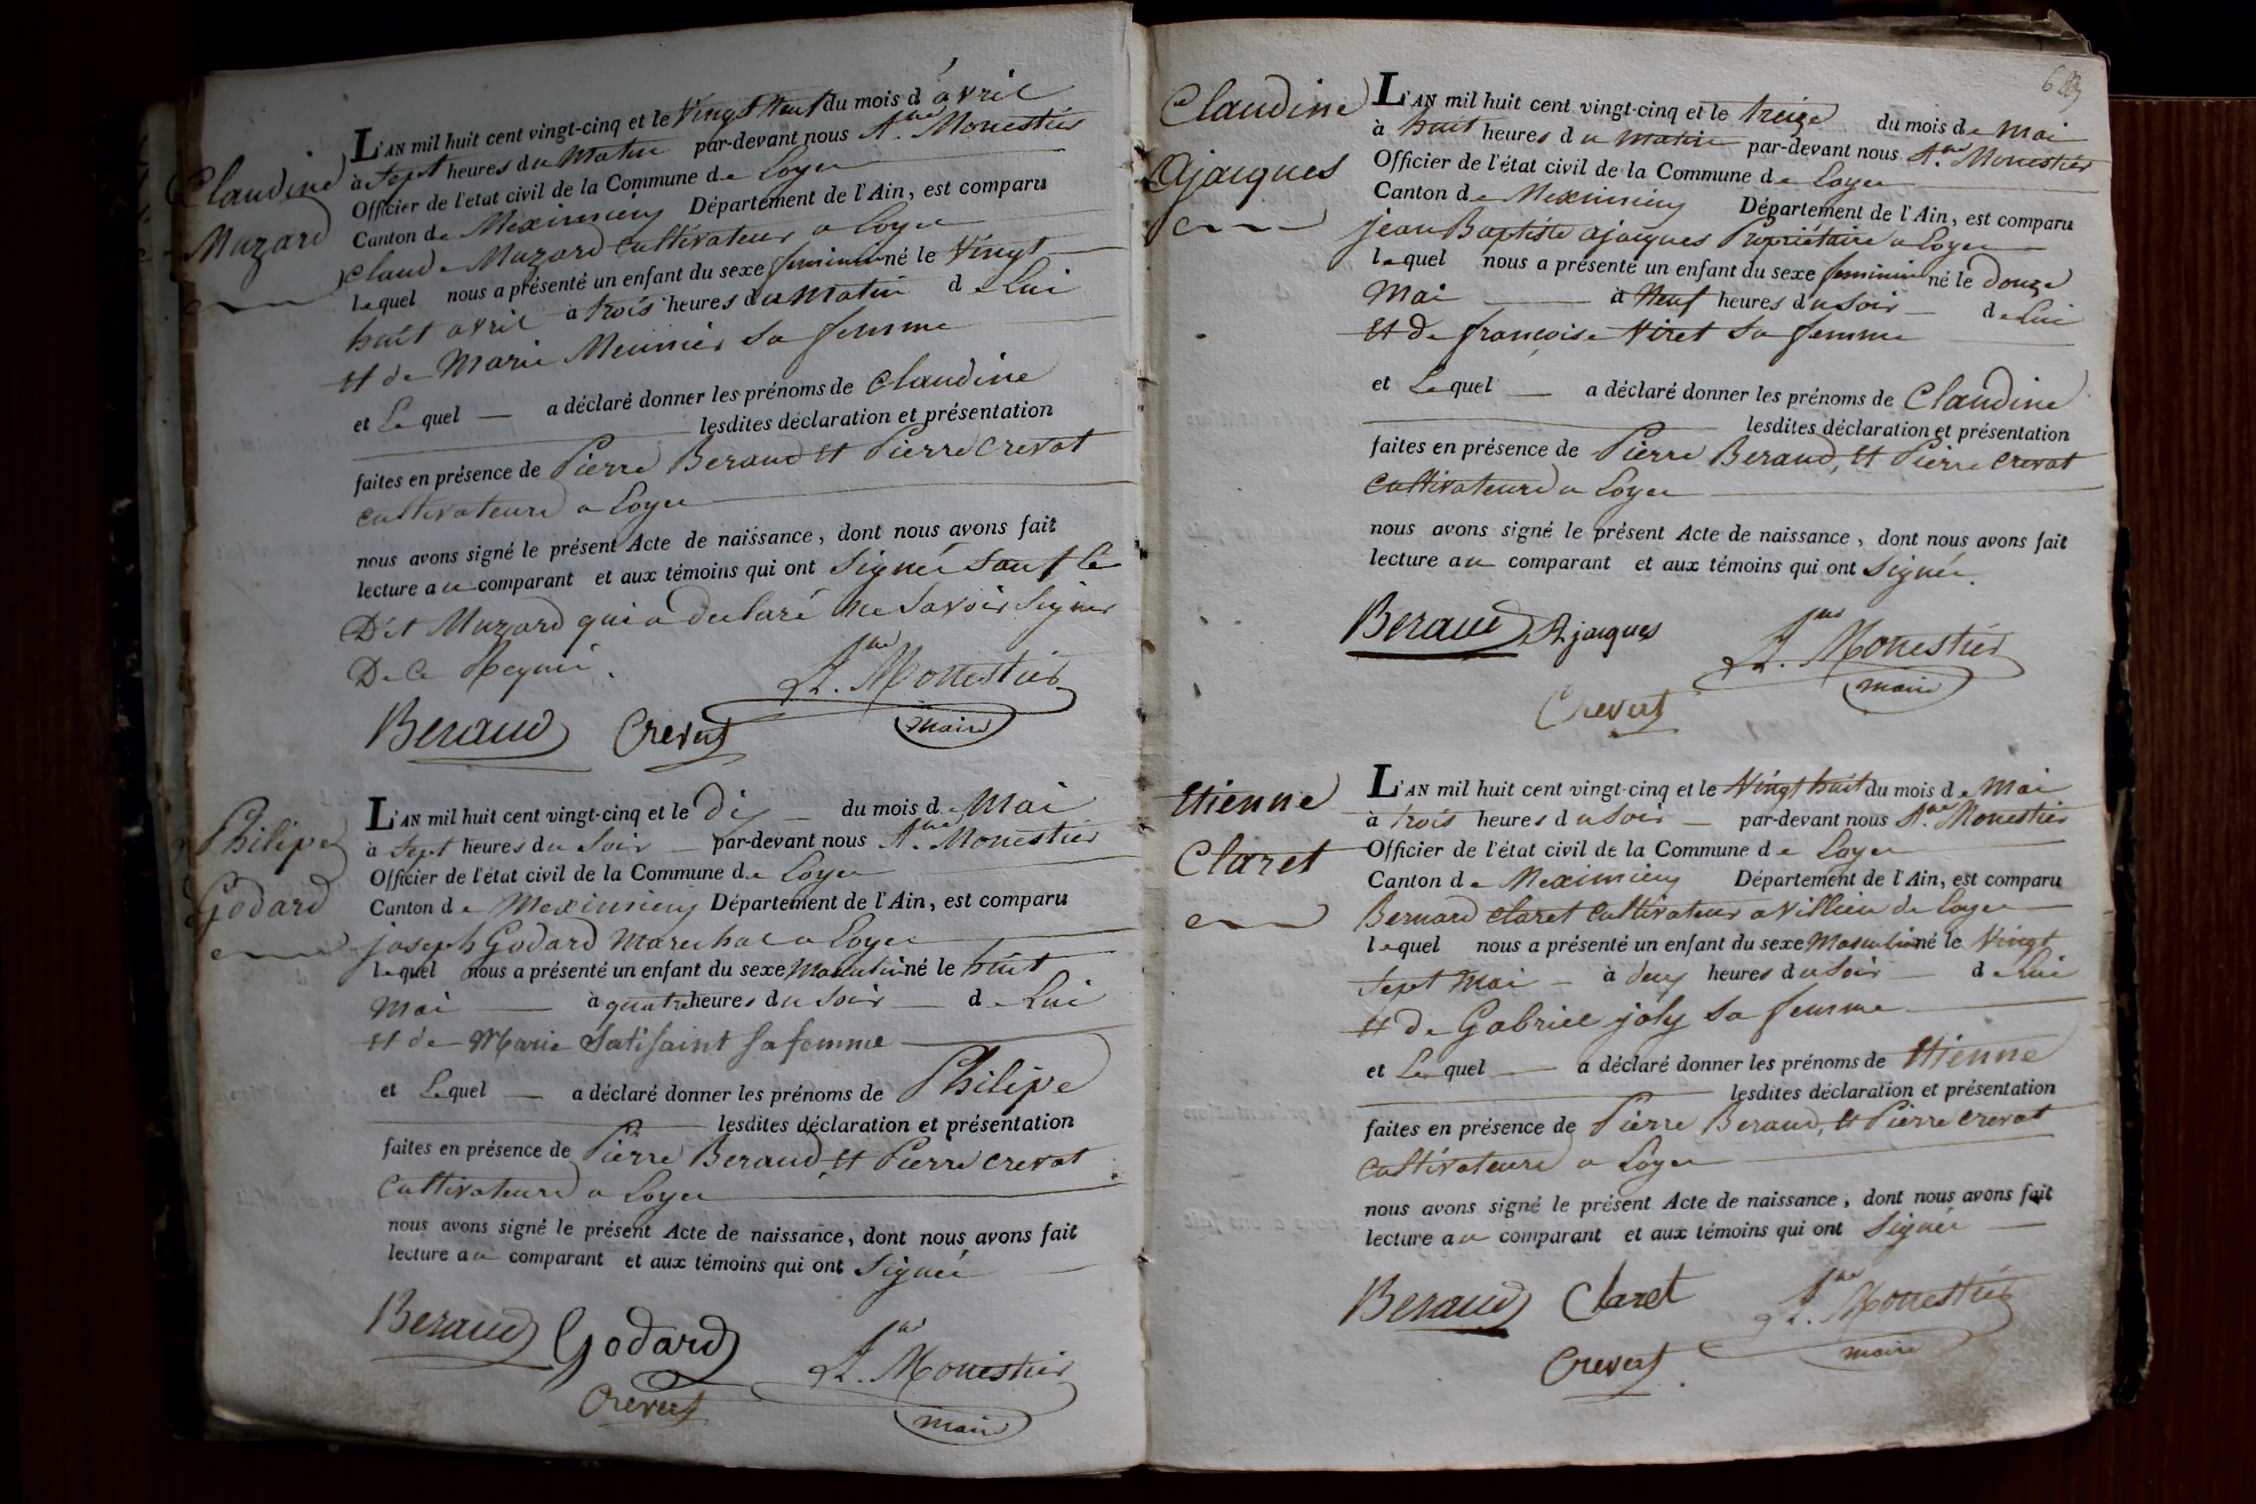 Claudine
Muzard
L'AN mil huit cent vingt-cinq et le Vingt Neuf du mois d'avril
à sept heures du Matin par-devant nous A.ne Monestier
Officier de l'état civil de la Commune de Loyer
Canton de Meximieux Département de l'Ain, est comparu
Claude Muzard cultivateur a Loyer
lequel nous a présenté un enfant du sexe feminin né le Vingt
huit avril à trois heures du Matin de Lui
et de Marie Meunier sa femme
et Le quel — a déclaré donner les prénoms de Claudine
lesdites déclaration et présentation
faites en présence de Pierre Beraud et Pierre Crevat
cultivateurs a Loyer
nous avons signé le présent Acte de naissance, dont nous avons fait
lecture au comparant et aux témoins qui ont signé sauf le
Dit Muzard qui a declaré ne savoir signer
De ce Requis.
A.ne Monestier
maire
Beraud Crevat
Philipe
Godard
L'AN mil huit cent vingt-cinq et le dix — du mois de Mai
à sept heures du soir — par-devant nous A.ne Monestier
Officier de l'état civil de la Commune de Loyer
Canton de Meximieux Département de l'Ain, est comparu
joseph Godard Marechal a Loyer
lequel nous a présenté un enfant du sexe Masculin né le huit
Mai — à quatre heures du soir — de Lui
et de Marie Satisfaint sa femme
et Lequel — a déclaré donner les prénoms de Philipe
lesdites déclaration et présentation
faites en présence de Pierre Beraud, et Pierre Crevat
Cultivateurs a Loyer
nous avons signé le présent Acte de naissance, dont nous avons fait
lecture au comparant et aux témoins qui ont signé
Beraud Godard
A.ne Monestier
Crevat
maire
Claudine
Ajacques
L'AN mil huit cent vingt-cinq et le treize du mois de Mai
à huit heures du matin par-devant nous A.ne Monestier
Officier de l'état civil de la Commune de Loyer
Canton de Meximieux Département de l'Ain, est comparu
jean Baptiste ajacques Propriétaire a Loyer
lequel nous a présenté un enfant du sexe feminin né le douze
Mai — à Neuf heures du soir — de Lui
et de françoise Viret sa femme
et Le quel — a déclaré donner les prénoms de Claudine
lesdites déclaration et présentation
faites en présence de Pierre Beraud, et Pierre Crevat
cultivateurs a Loyer
nous avons signé le présent Acte de naissance, dont nous avons fait
lecture au comparant et aux témoins qui ont signé.
Beraud Ajacques A.ne Monestier
maire
Crevat
Etienne
Claret
L'AN mil huit cent vingt-cinq et le Vingt huit du mois de Mai
à trois heures du soir — par-devant nous A.ne Monestier
Officier de l'état civil de la Commune de Loyer
Canton de Meximieux Département de l'Ain, est comparu
Bernard claret Cultivateur a Villieu de Loyer
lequel nous a présenté un enfant du sexe Masculin né le Vingt
sept Mai — à deux heures du soir — de Lui
et de Gabriel joly sa femme
et Le quel — a déclaré donner les prénoms de Etienne
lesdites déclaration et présentation
faites en présence de Pierre Beraud, et Pierre Crevat
Cultivateurs a Loyer
nous avons signé le présent Acte de naissance, dont nous avons fait
lecture au comparant et aux témoins qui ont signé —
Beraud Claret A.ne Monestier
maire
Crevat